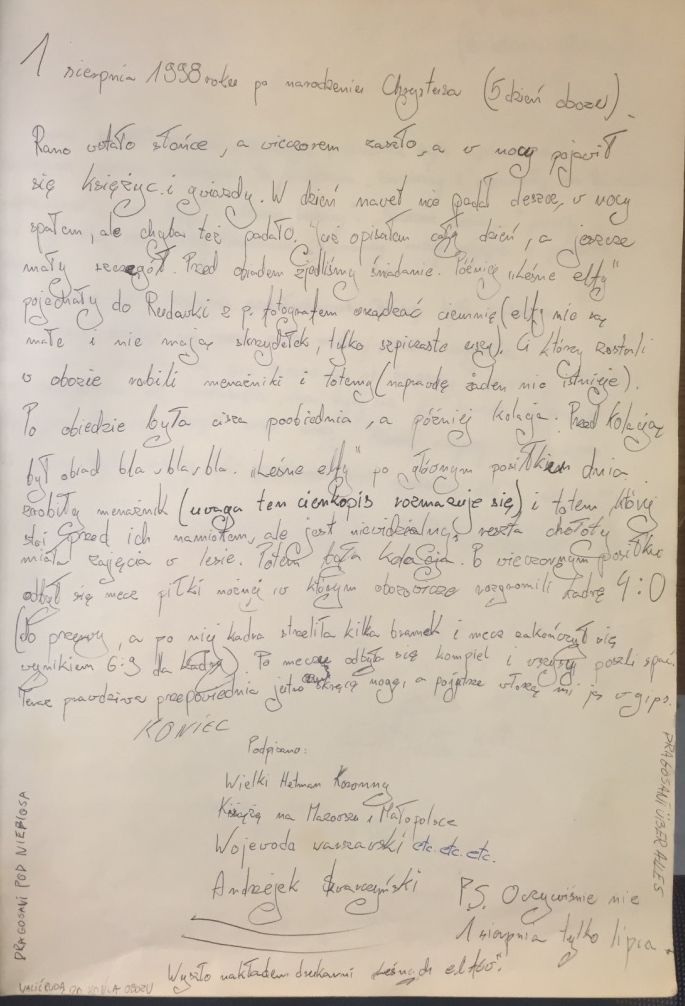 1 sierpnia 1998 roku po narodzeniu Chrystusa (5 dzień obozu).
Rano wstało słońce, a wieczorem zaszło, a w nocy pojawił
się księżyc i gwiazdy. W dzień nawet nie padał deszcz, w nocy
spałem, ale chyba też padało. Już opisałem cały dzień, a jeszcze
mały szczegół. Przed obiadem zjedliśmy śniadanie. Później "Leśne elfy"
pojechały do Rudawki z p. fotografem urządzać ciemnię (elfy nie są
małe i nie mają skrzydełek, tylko szpiczaste uszy). Ci którzy zostali
w obozie robili menażniki i totemy (naprawdę żaden nie istnieje).
Po obiedzie była cisza poobiednia, a później kolacja. Przed kolacją
był obiad bla, bla, bla. "Leśne elfy" po głównym posiłkiem dnia
zrobiły menażnik (uwaga ten cienkopis rozmazuje się) i totem, który
stoi przed ich namiotem, ale jest niewidzialny, reszta chołoty
miała zajęcia w lesie. Potem była kolacja. Po wieczornym posiłku
odbył się mecz piłki nożnej w którym obozowicze rozgromili kadrę 4:0
(do przerwy, a po niej kadra strzeliła kilka bramek i mecz zakończył się
wynikiem 6:9 dla kadry). Po meczu odbyła się kąpiel i wszyscy poszli spać.
Teraz prawdziwa przepowiednia jutro skręcę nogę, a pojutrze włożą mi ją w gips.
KONIEC
Podpisano:
Wielki Hetman Koronny
Książę na Mazowszu i Małopolsce
Wojewoda warszawski etc. etc. etc.
Andrzejek Skwarczyński
P.S. Oczywiście nie
1 sierpnia tylko lipca.
Wyszło nakładem drukarni "Leśnych elfów".
DRAGOSANI POD NIEBIOSA
DRAGOSANI ÜBER ALLES
OBOZU